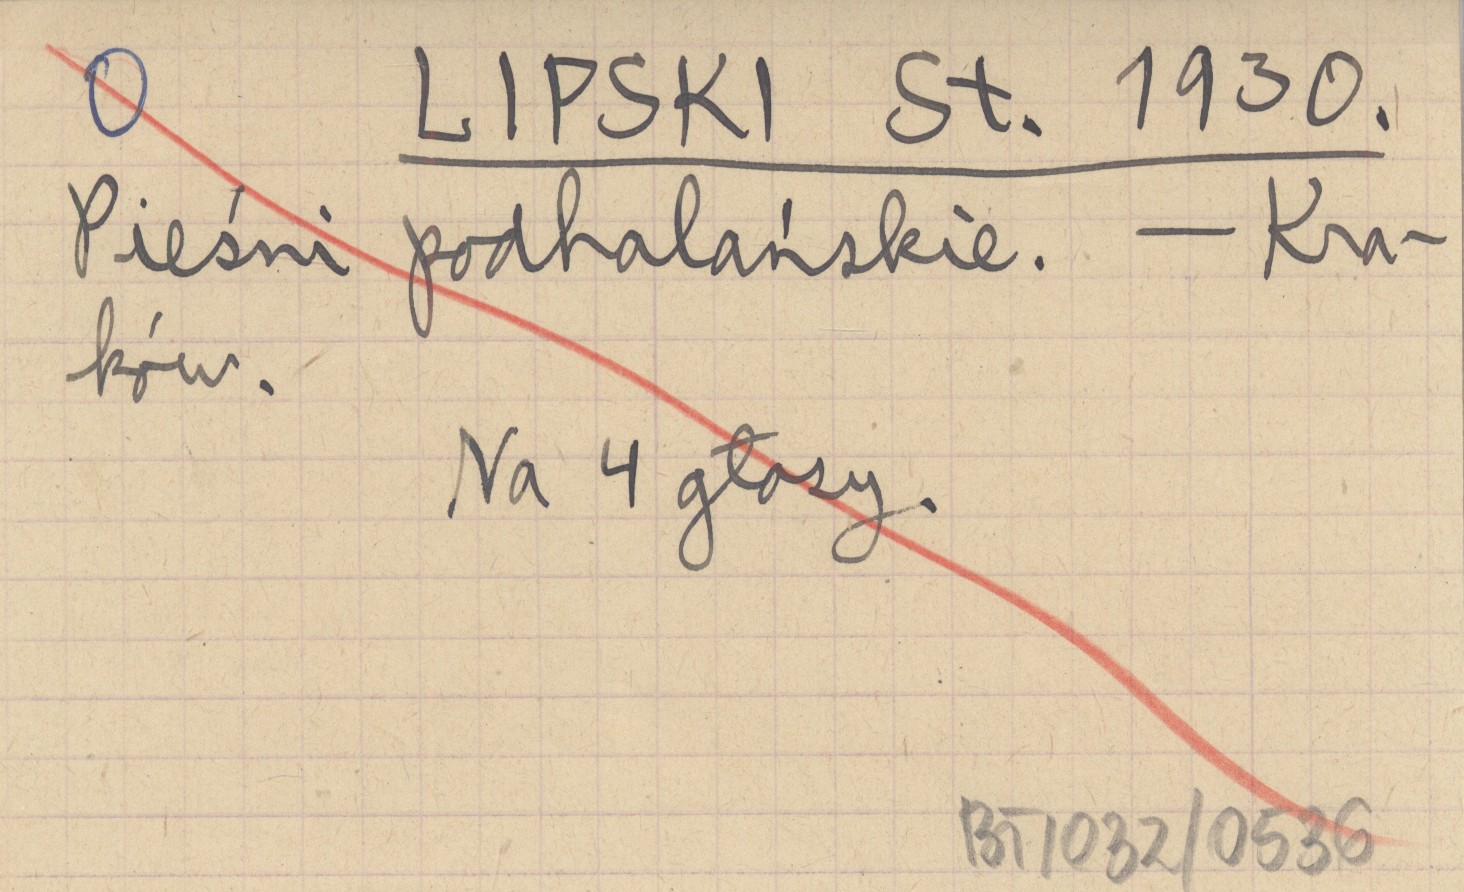 O LIPSKI St. 1930.
Pieśni podhalańskie. — Kra-
ków.
Na 4 głosy.
BT1032/0536